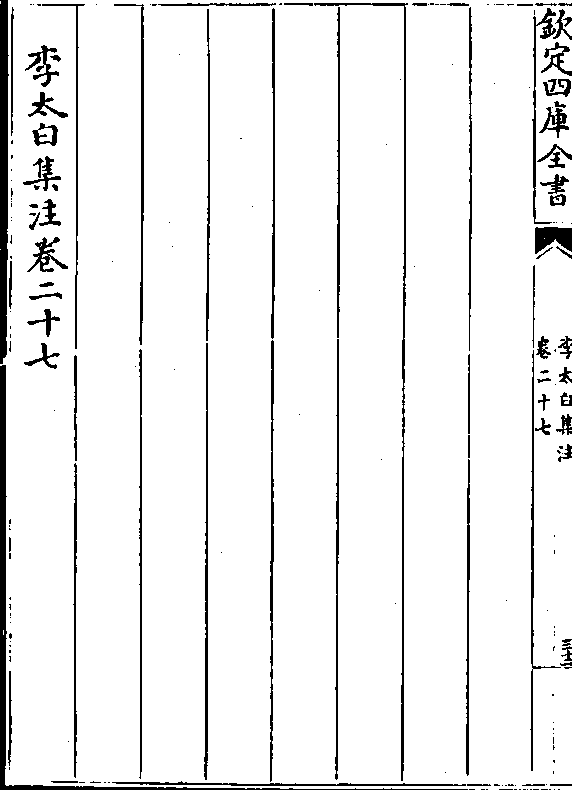 欽定四庫全書
李太白集注
卷二十七
李太白集注卷二十七